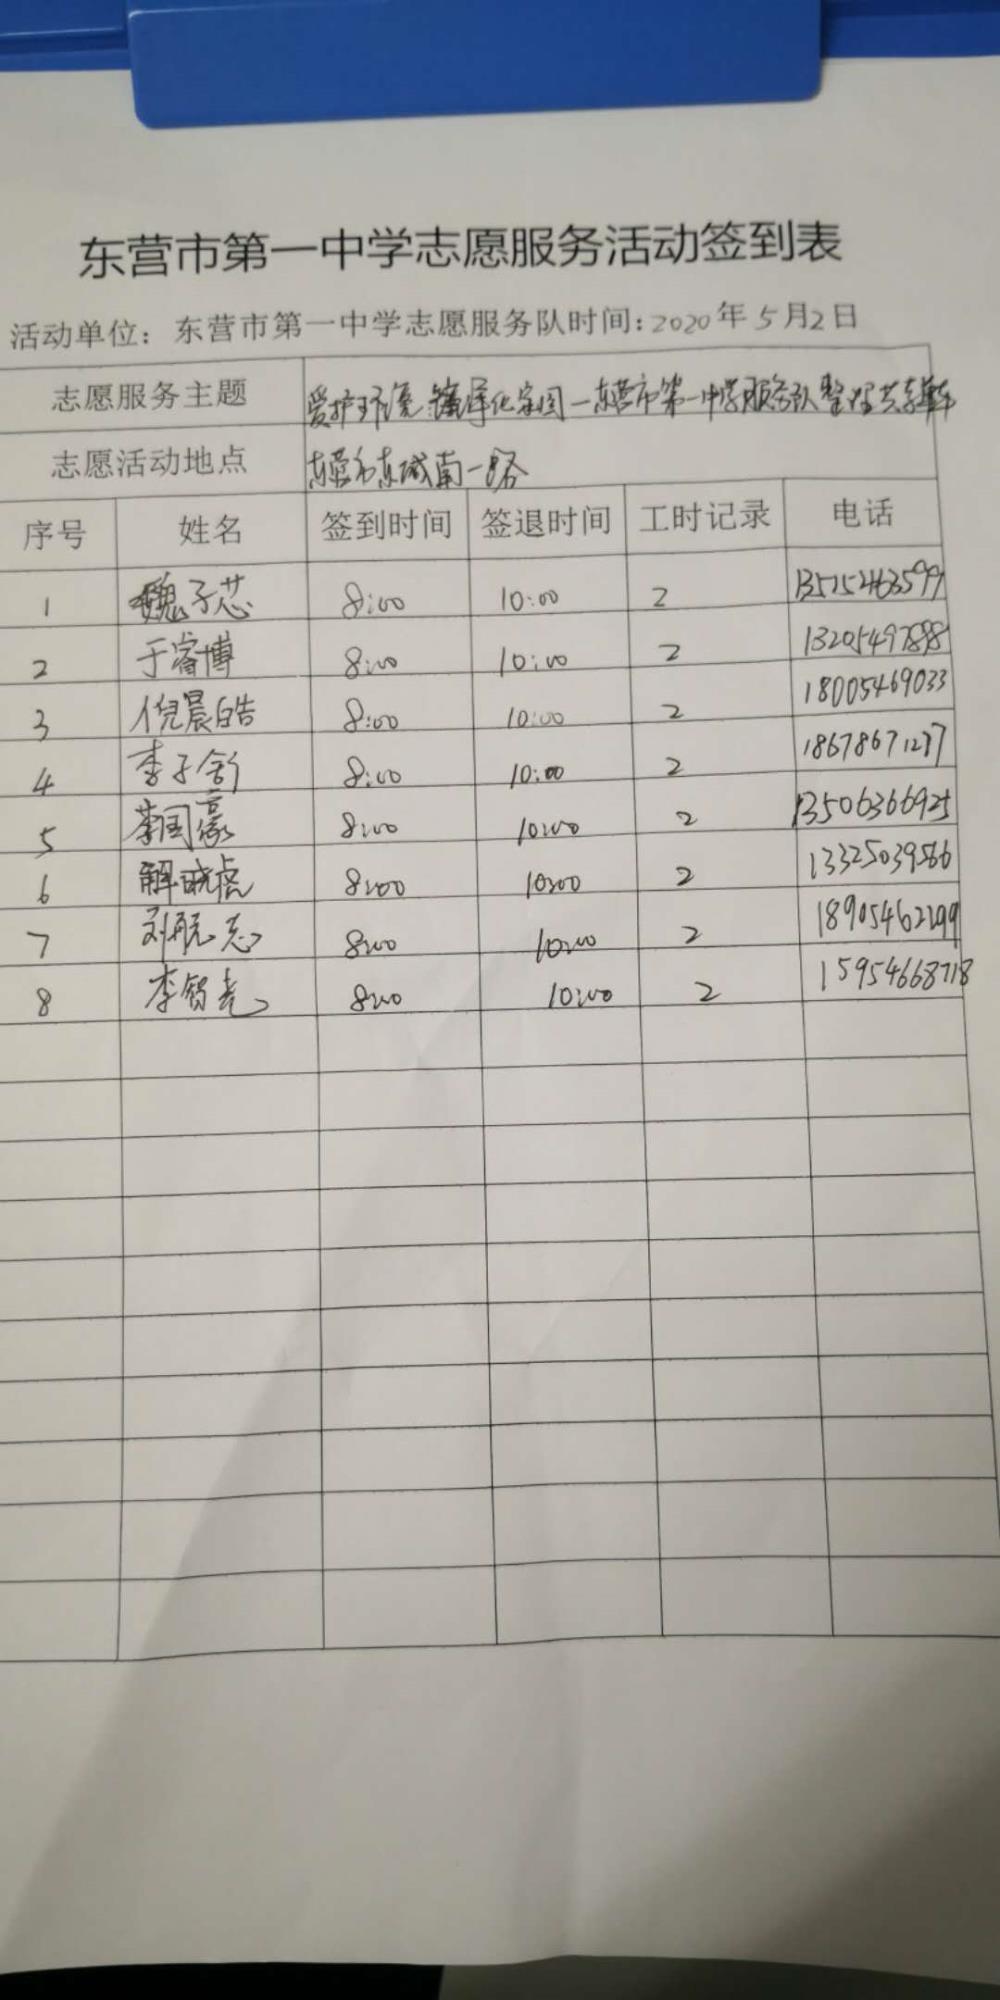 东营市第一中学志愿服务活动签到表
活动单位：东营市第一中学志愿服务队时间：2020年5月2日
志愿服务主题 爱护环境 美化家园—东营市第一中学服务队整理共享单车
志愿活动地点 东营市东城南一路
序号 姓名 签到时间 签退时间 工时记录 电话
1 魏子芯 8:00 10:00 2 13515463599
2 于睿博 8:00 10:00 2 13205497898
3 倪晨皓 8:00 10:00 2 18005469033
4 李子舒 8:00 10:00 2
5 国豪 8:00 10:00 2 13506366925
6 解晓虎 8:00 10:00 2 13325039566
7 刘航志 8:00 10:00 2 18905462299
8 李智尧 8:00 10:00 2 15954668718